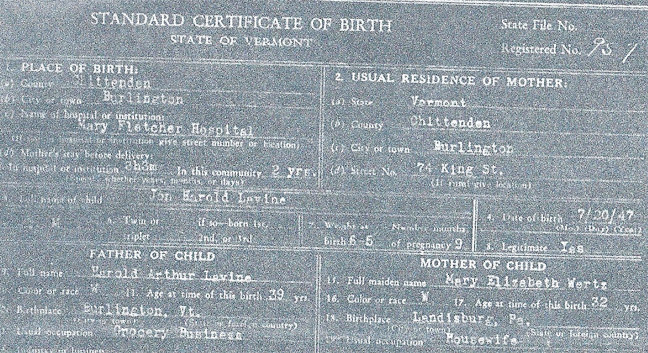 STANDARD CERTIFICATE OF BIRTH
STATE OF VERMONT
State File No.
Registered No. 95
1. PLACE OF BIRTH:
(a) County Chittenden
(b) City or town Burlington
(c) Name of hospital or institution:
Mary Fletcher Hospital
hospital or institution give street number or location)
(d) Mother's stay before delivery:
In hospital or institution 8h3m In this community 2 yrs.
whether years, months, or days)
2. USUAL RESIDENCE OF MOTHER:
(a) State Vermont
(b) County Chittenden
(c) City or town Burlington
(d) Street No. 74 King St.
(If rural give location)
3. Full name of child Jon Harold Lavine
4. Date of birth 7/20/47
(Mo.) (Day) (Year)
M 6. Twin or triplet If so—born 1st, 2nd, or 3rd
7. Weight at birth 6-5 Number months of pregnancy 9.
8. Legitimate Yes
FATHER OF CHILD
9. Full name Harold Arthur Lavine
Color or race W 11. Age at time of this birth 29 yrs.
Birthplace Burlington, Vt.
(City or town) (State or foreign country)
Usual occupation Grocery Business
Industry or business
MOTHER OF CHILD
15. Full maiden name Mary Elizabeth Wertz
16. Color or race W 17. Age at time of this birth 32 yrs.
18. Birthplace Landisburg, Pa.
(City or town) (State or foreign country)
19. Usual occupation Housewife